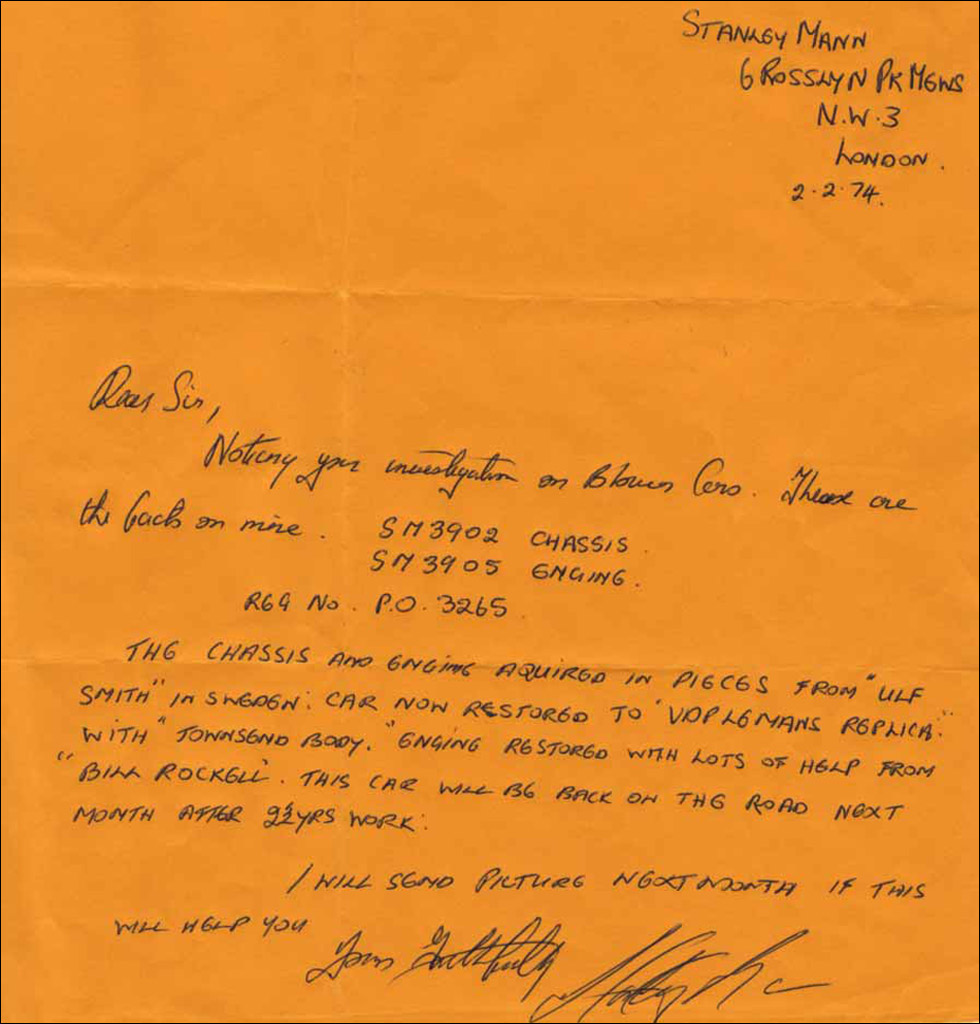 STANLEY MANN
6 ROSSLYN PK MEWS
N.W.3
LONDON.
2.2.74.
Dear Sir,
Noticing your investigation on Blower Cars. These are
the facts on mine. SM3902 CHASSIS.
SM3905 ENGINE.
REG No. P.O.3265
THE CHASSIS AND ENGINE AQUIRED IN PIECES FROM "ULF
SMITH" IN SWEDEN: CAR NOW RESTORED TO "VDP LEMANS REPLICA."
WITH "TOWNSEND BODY." ENGINE RESTORED WITH LOTS OF HELP FROM
"BILL ROCKELL". THIS CAR WILL BE BACK ON THE ROAD NEXT
MONTH AFTER 2½YRS WORK.
I WILL SEND PICTURE NEXT MONTH IF THIS
WILL HELP YOU
Yours Faithfully